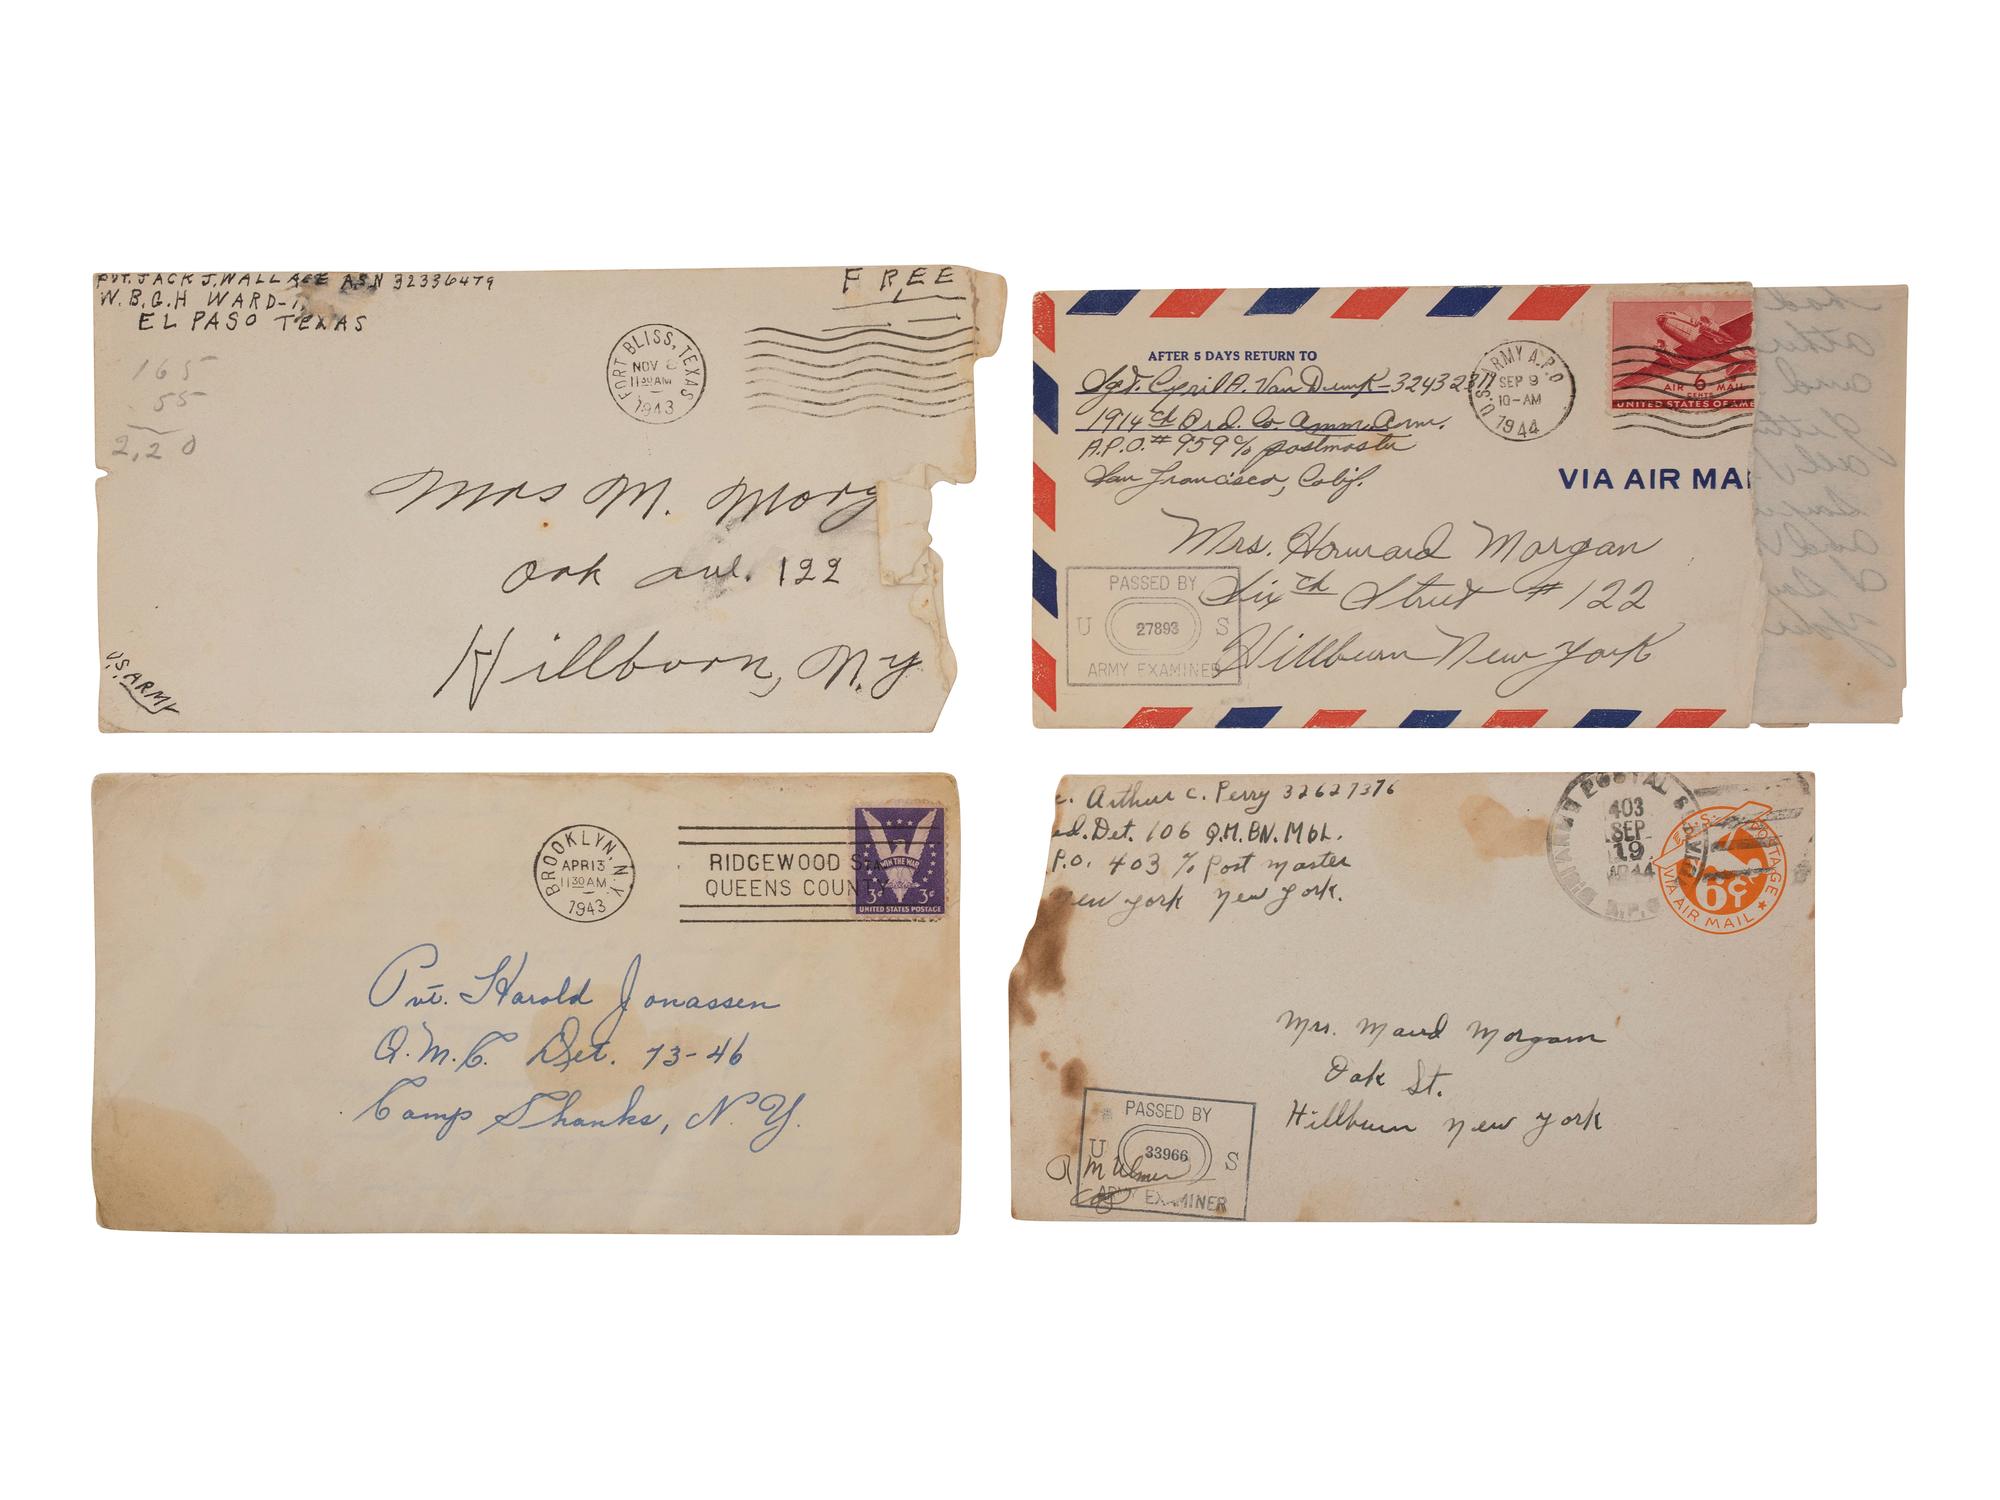 PVT. JACK J. WALLACE ASN 32336479
W.B.G.H WARD-1
EL PASO TEXAS
FREE
FORT BLISS, TEXAS
NOV 8
11 30 AM
1943
165
55
2,20
Mrs M. Morg
Oak ave. 122
Hillborn, N.y
U.S. ARMY
AFTER 5 DAYS RETURN TO
Sgt. Cyril A. Van Dunk-32432811
1914th Ord. Co. Amm. Avn.
A.P.O. # 959 c/o postmaster
San Francisco, Calif.
U.S. ARMY A.P.O
SEP 9
10-AM
1944
AIR 6 MAIL
CENTS
UNITED STATES OF AME
VIA AIR MAI
Mrs. Howard Morgan
Sixth Street # 122
Hillburn New York
PASSED BY
U 27893 S
ARMY EXAMINER
BROOKLYN, N.Y.
APR 13
11 30 AM
1943
RIDGEWOOD STA.
QUEENS COUNTY
WIN THE WAR
3¢ 3¢
UNITED STATES POSTAGE
Pvt. Harold Jonassen
Q.M.C. Det. 73-46
Camp Shanks, N.Y.
c. Arthur C. Perry 32627376
ad. Det. 106 Q.M. BN. Mbl.
P.O. 403 c/o Post master
new york new york.
POSTAL
A.P.O.
403
SEP
19
1944
U.S. POSTAGE
6¢
VIA AIR MAIL
Mrs. Maud Morgam
Oak St.
Hillburn new york
PASSED BY
U 33966 S
ARMY EXAMINER